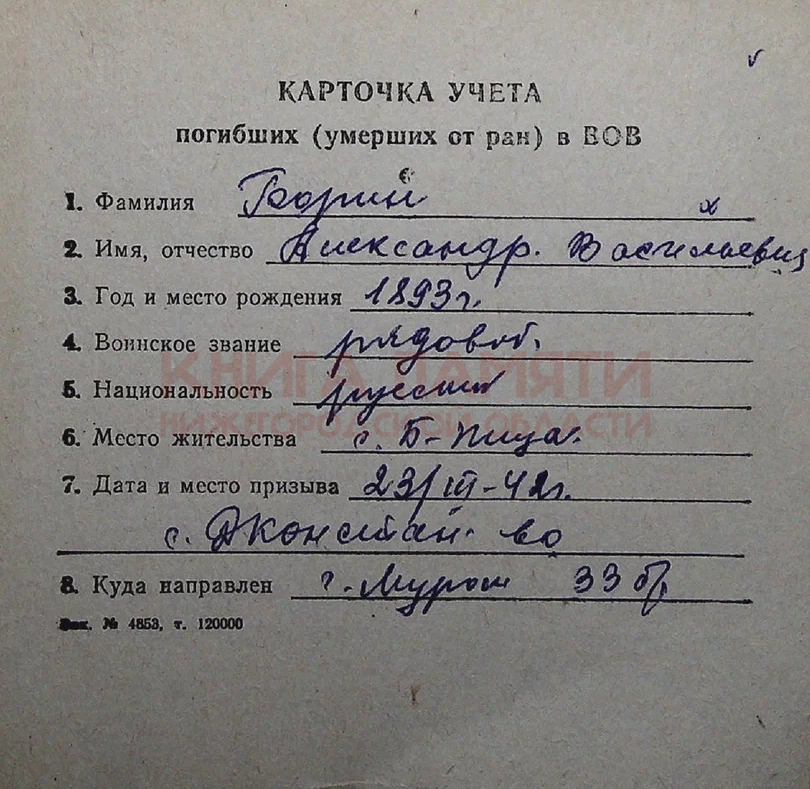 КАРТОЧКА УЧЕТА
погибших (умерших от ран) в ВОВ
1. Фамилия
2. Имя, отчество Александр. Васильевич
3. Год и место рождения 1893г.
4. Воинское звание рядовой.
5. Национальность русский
КНИГА ПАМЯТИ
НИЖЕГОРОДСКОЙ ОБЛАСТИ
6. Место жительства с. Б-Пица.
7. Дата и место призыва 23/III-42г.
с. Дконстан-во
8. Куда направлен г. Муром 33
Зак. № 4853, т. 120000